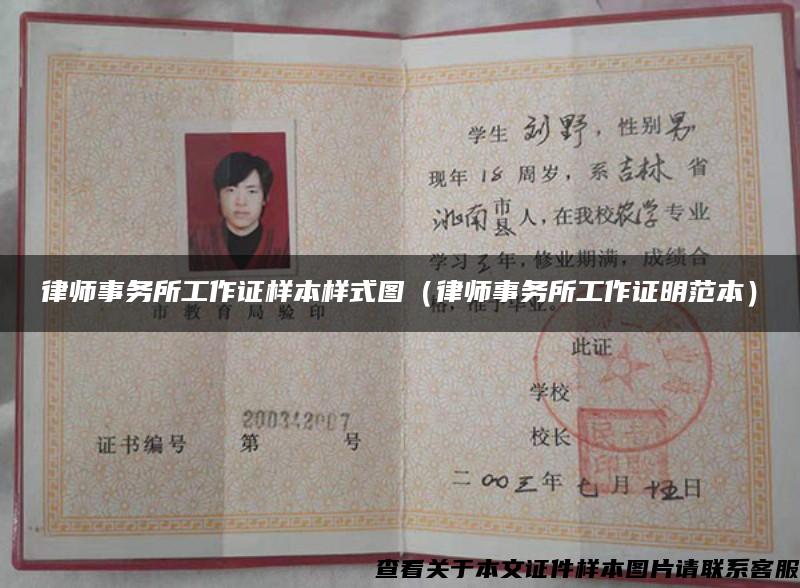 学生 刘野，性别男
现年 18 周岁，系吉林省
洮南市县人，在我校农学专业
学习三年，修业期满，成绩合
律师事务所工作证样本样式图（律师事务所工作证明范本）
格，准予毕业。
市教育局验印
此证
学校
200342007
证书编号 第 号
校长
二〇〇三年七月十五日
查看关于本文证件样本图片请联系客服